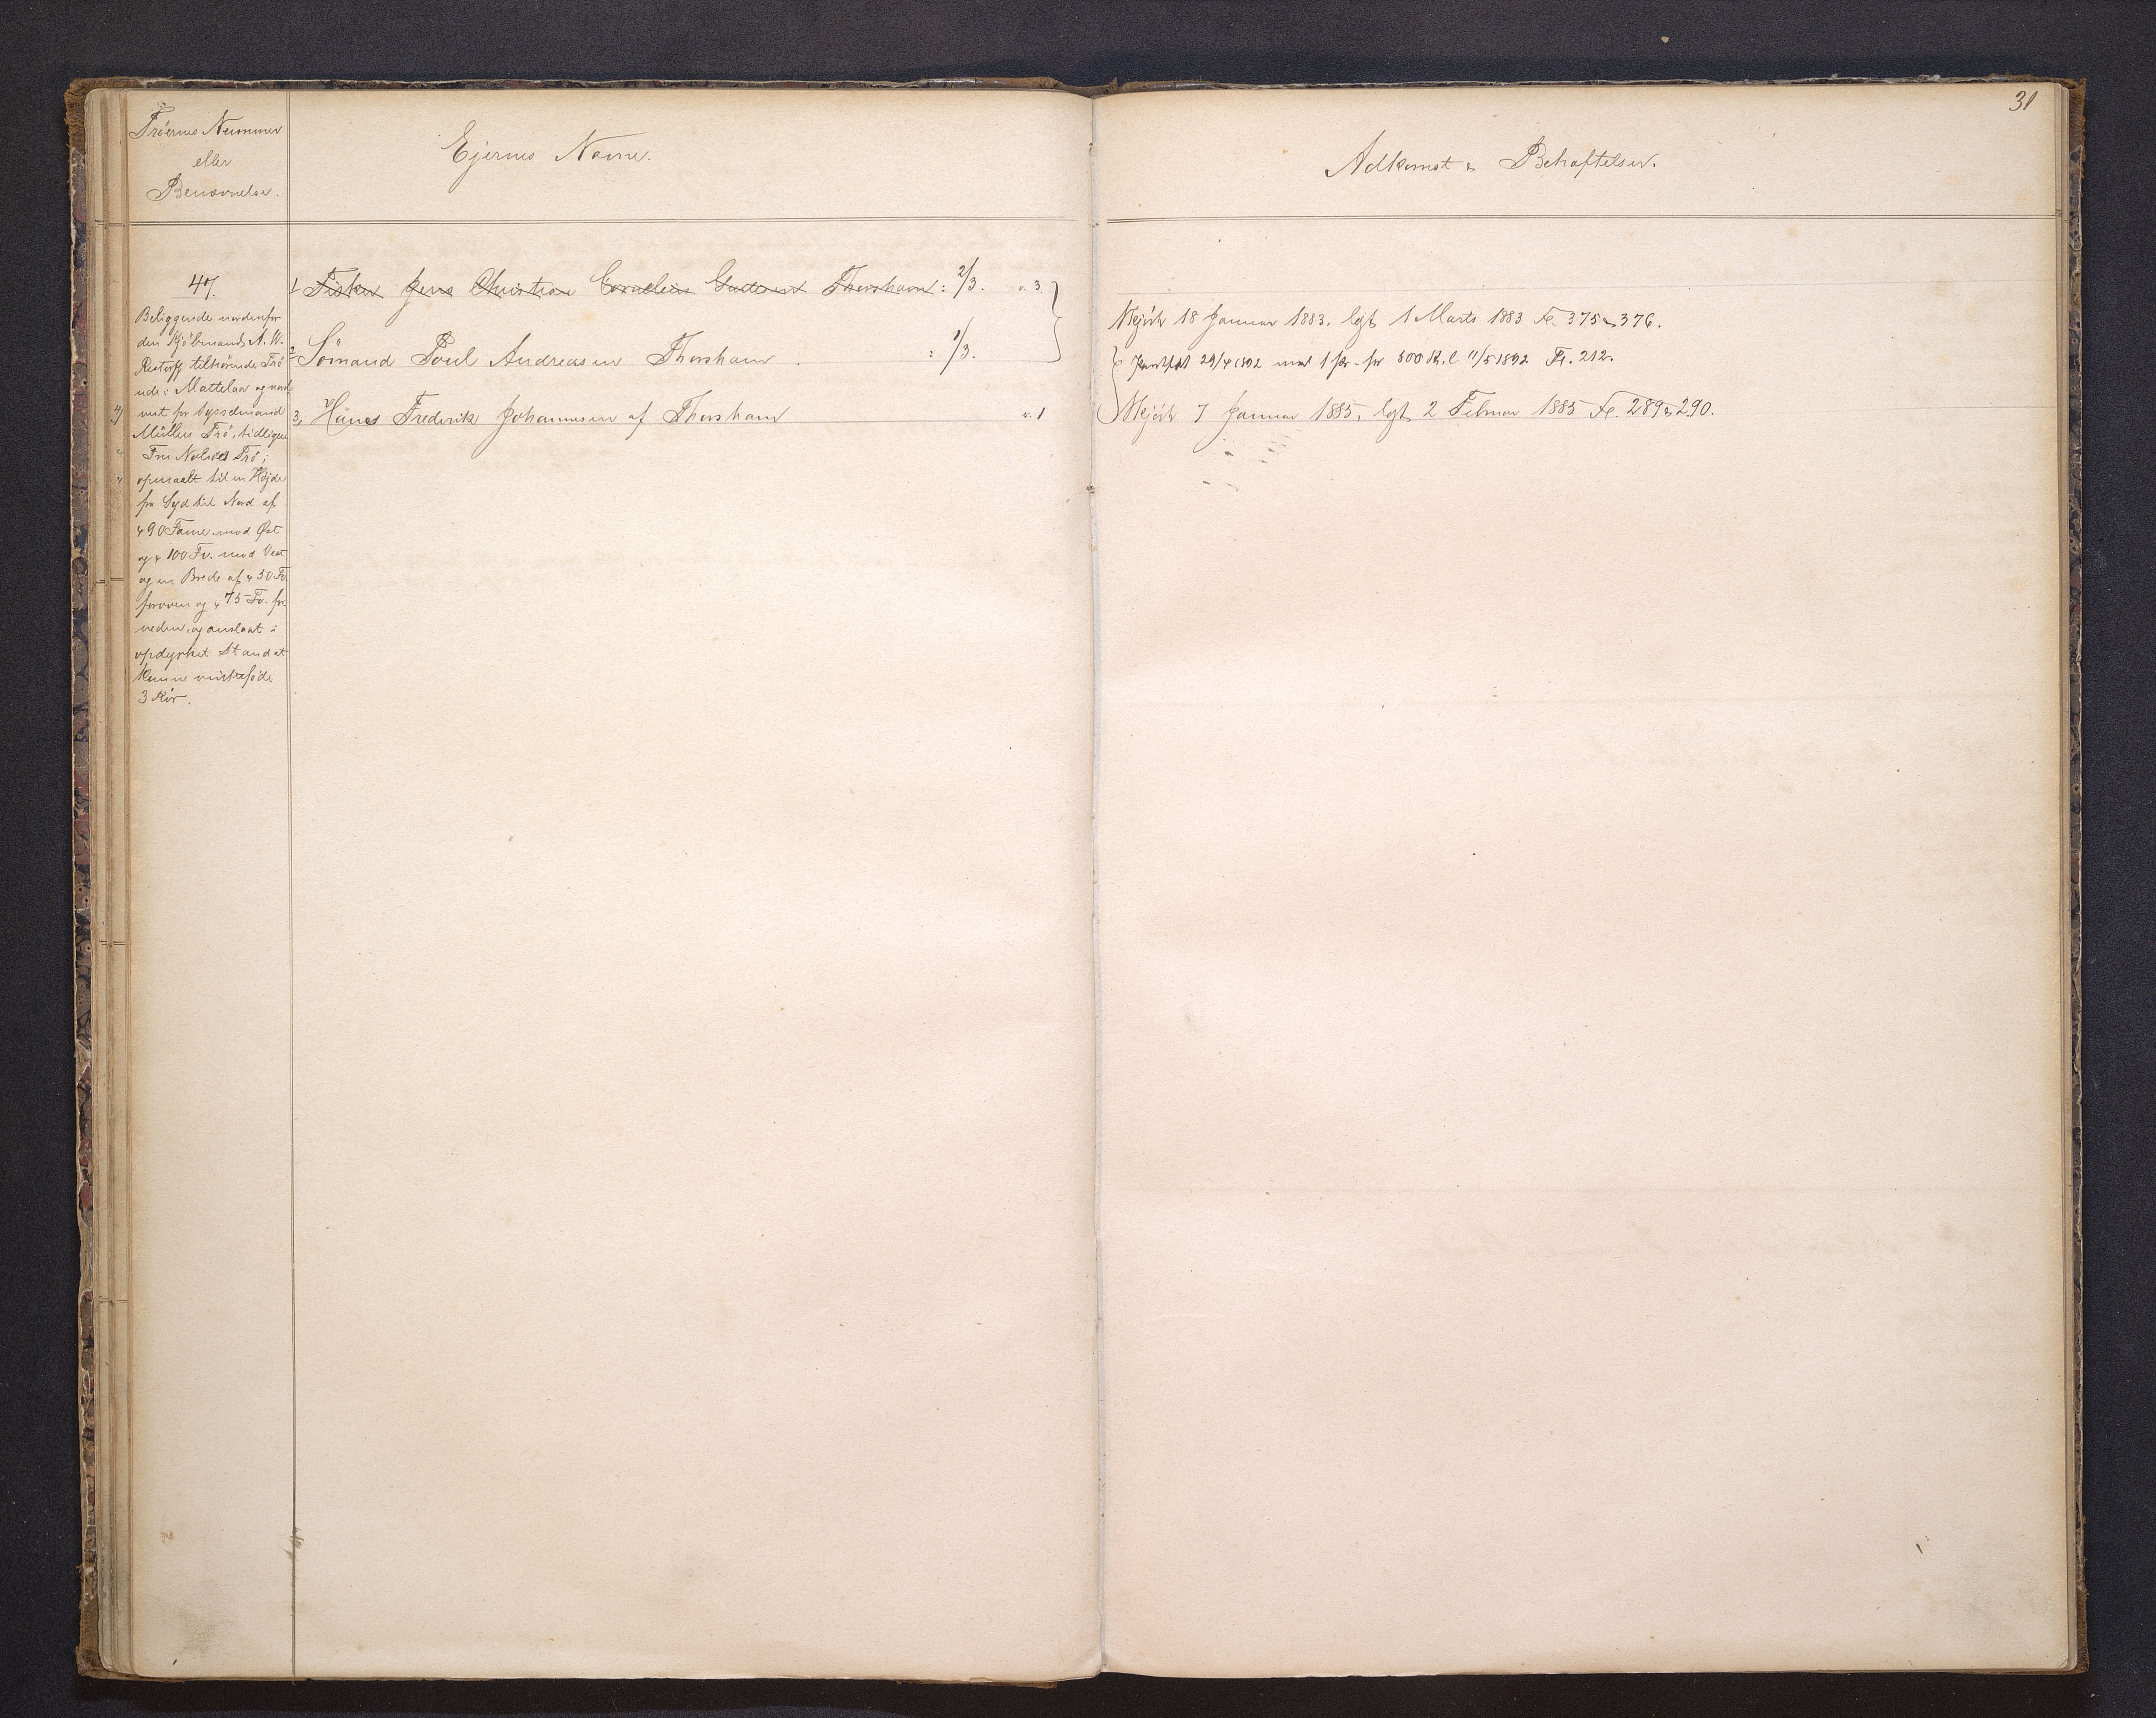 Tröernes Nummer
eller
Benævnelse.
Ejernes Navne.
31
Adkomst & Behæftelser.
47.
Beliggende nordenfor
den Kjöbmand M. W.
Restorff tilhörende Trö
ude i Mattelaa og nord
vest for Sysselmand
Müllers Trö, tidligere
Fru Nolsöes Trö;
opmaalt til en Højde
fra Syd til Nord af
90 Favne mod Øst
og 100 Fv. mod Vest
og en Brede af 50 Fv.
foroven og 75 Fv. for
neden, og anslaat i
opdyrket Stand at
kunne vinterföde
3 Kör.
1 Fisker Jens Christian Cornelius Guttesen Thorshavn : 2/3. v. 3
2 Sömand Poul Andreasen Thorshavn : 1/3.
3, Hans Frederik Johannesen af Thorshavn v. 1
Skjöde 18 Januar 1883. lgt. 1 Marts 1883 Fr. 375 & 376.
Pantobl 29/4 1892 med 1 Pr. for 500 Kr. l 11/5 1892 Fr. 212.
Skjöde 7 Januar 1885, lgt. 2 Februar 1885 Fr. 289 & 290.